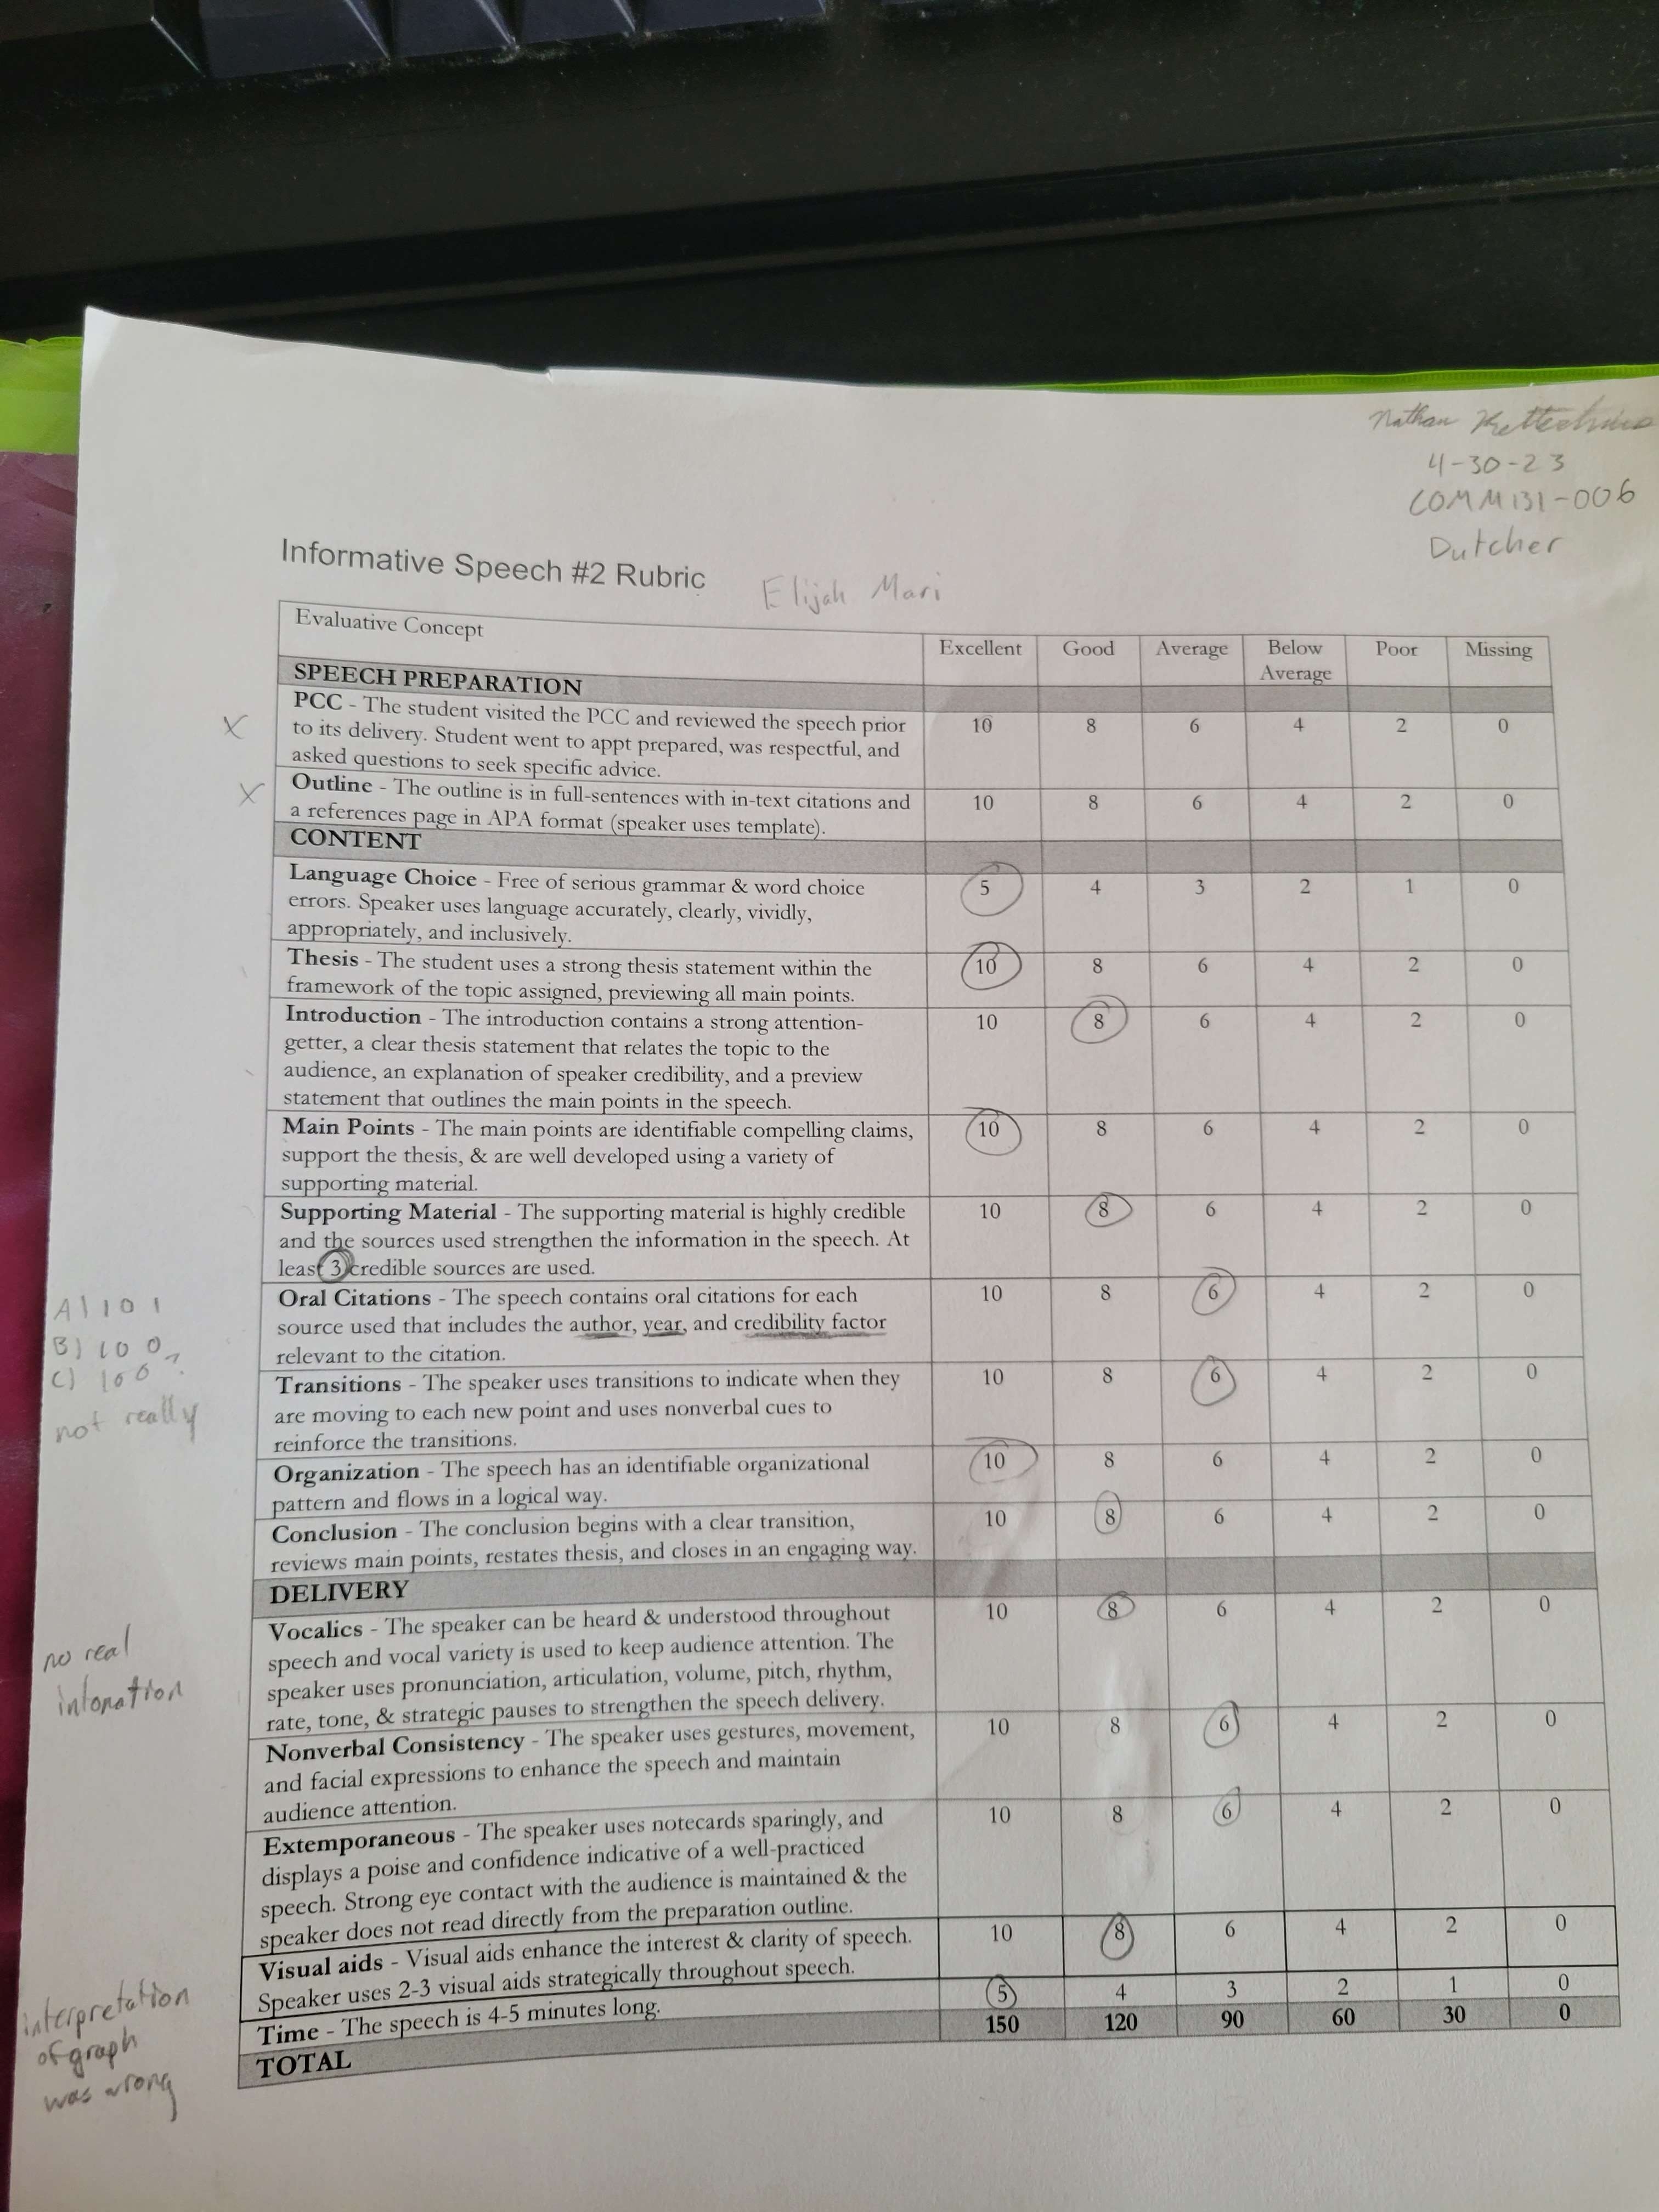 Nathan
4-30-23
COMM131-006
Dutcher
Informative Speech #2 Rubric
Elijah Mari
Evaluative Concept Excellent Good Average Below Average Poor Missing
SPEECH PREPARATION
X PCC - The student visited the PCC and reviewed the speech prior 10 8 6 4 2 0
to its delivery. Student went to appt prepared, was respectful, and
asked questions to seek specific advice.
X Outline - The outline is in full-sentences with in-text citations and 10 8 6 4 2 0
a references page in APA format (speaker uses template).
CONTENT
Language Choice - Free of serious grammar & word choice 5 4 3 2 1 0
errors. Speaker uses language accurately, clearly, vividly,
appropriately, and inclusively.
Thesis - The student uses a strong thesis statement within the 10 8 6 4 2 0
framework of the topic assigned, previewing all main points.
Introduction - The introduction contains a strong attention- 10 8 6 4 2 0
getter, a clear thesis statement that relates the topic to the
audience, an explanation of speaker credibility, and a preview
statement that outlines the main points in the speech.
Main Points - The main points are identifiable compelling claims, 10 8 6 4 2 0
support the thesis, & are well developed using a variety of
supporting material.
Supporting Material - The supporting material is highly credible 10 8 6 4 2 0
and the sources used strengthen the information in the speech. At
least 3 credible sources are used.
Oral Citations - The speech contains oral citations for each 10 8 6 4 2 0
source used that includes the author, year, and credibility factor
relevant to the citation.
A) 101
B) 100
C) 100?
not really
Transitions - The speaker uses transitions to indicate when they 10 8 6 4 2 0
are moving to each new point and uses nonverbal cues to
reinforce the transitions.
Organization - The speech has an identifiable organizational 10 8 6 4 2 0
pattern and flows in a logical way.
Conclusion - The conclusion begins with a clear transition, 10 8 6 4 2 0
reviews main points, restates thesis, and closes in an engaging way.
DELIVERY
Vocalics - The speaker can be heard & understood throughout 10 8 6 4 2 0
speech and vocal variety is used to keep audience attention. The
speaker uses pronunciation, articulation, volume, pitch, rhythm,
rate, tone, & strategic pauses to strengthen the speech delivery.
no real
intonation
Nonverbal Consistency - The speaker uses gestures, movement, 10 8 6 4 2 0
and facial expressions to enhance the speech and maintain
audience attention.
Extemporaneous - The speaker uses notecards sparingly, and 10 8 6 4 2 0
displays a poise and confidence indicative of a well-practiced
speech. Strong eye contact with the audience is maintained & the
speaker does not read directly from the preparation outline.
Visual aids - Visual aids enhance the interest & clarity of speech. 10 8 6 4 2 0
Speaker uses 2-3 visual aids strategically throughout speech.
Time - The speech is 4-5 minutes long. 5 4 3 2 1 0
TOTAL 150 120 90 60 30 0
interpretation
of graph
was wrong